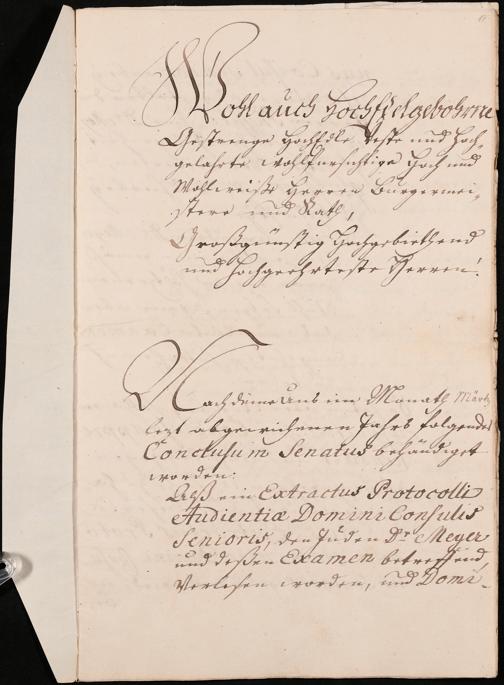 Wohl auch HochEdelgebohrne
Gestrenge HochEdle Veste und Hoch-
gelahrte wohlfürsichtige Hoch und
Wohlweiße Herren Bürgermei-
stere und Rath,
Großgünstig Hochgebiethend
und Hochgeehrteste Herren!
Nachdeme Uns im Monath Märtz
lezt abgewichenen Jahrs folgendes
Conclusum Senatus behändiget
worden:
Alß ein Extractus Protocolli
Audientiæ Domini Consulis
Senioris, den Juden Dr. Meyer
und deßen Examen betreffend,
Verlesen worden, und Domi-